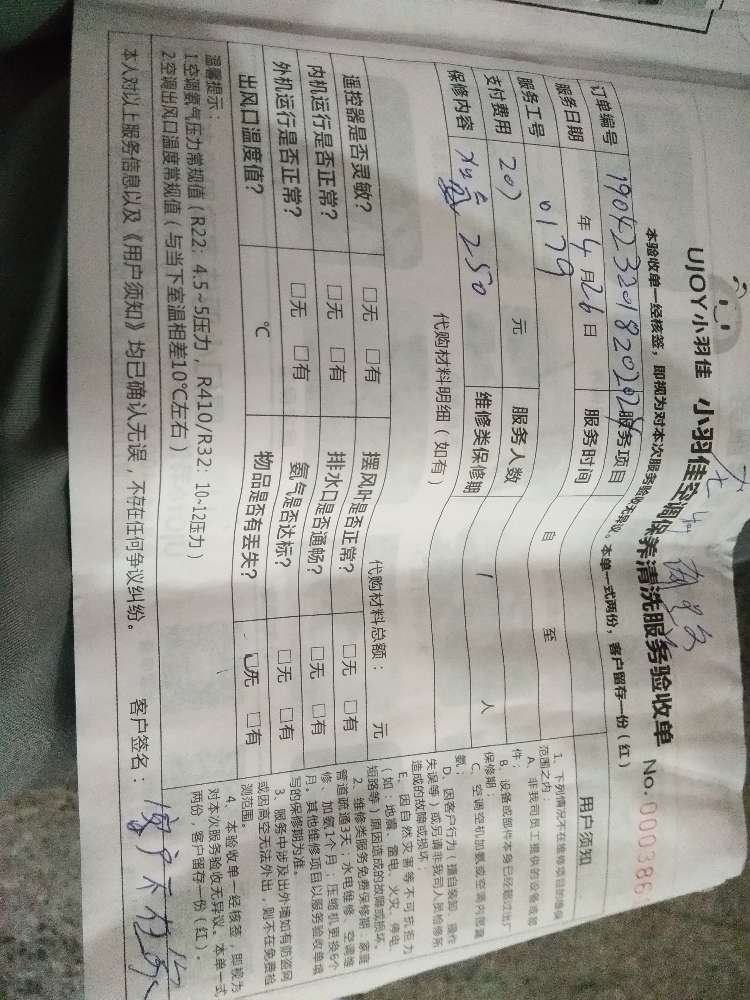 UJOY小羽佳 小羽佳空调保养清洗服务验收单 No.000386
本验收单一经核签，即视为对本次服务验收无异议。本单一式两份，客户留存一份(红)
订单编号 服务项目
服务日期 年 4 月 26 日 服务时间 自 至
服务工号 0179 服务人数 人
支付费用 207 元 维修类保修期 /
保修内容 250
代购材料明细(如有) 代购材料总额： 元
遥控器是否灵敏？ □无 □有 摆风叶是否正常？ □无 □有
内机运行是否正常？ □无 □有 排水口是否通畅？ □无 □有
外机运行是否正常？ □无 □有 氨气是否达标？ □无 □有
出风口温度值？ ℃ 物品是否有丢失？ □无 □有
温馨提示：
1空调氨气压力常规值(R22：4.5~5压力，R410/R32：10~12压力)
2空调出风口温度常规值(与当下室温相差10℃左右)
本人对以上服务信息以及《用户须知》均已确认无误，不存在任何争议纠纷。 客户签名：
用户须知
1、下列情况不在维修项目的维保
范围之内
A、非我司员工提供的设备或部
件；
B、设备或部件本身已经超过出厂
保修期；
C、空调空机加氨或空调内漏漏
氨；
D、因客户行为(擅自装卸、操作
失误等)或另请非我司人员检修所
造成的故障或损坏；
E、因自然灾害等不可抗拒力
(如：地震、雷电、火灾、停电、
短路等)原因造成的故障或损坏。
2、维修类服务免费保修期：家庭
管道疏通3天；水电维修、空调维
修、加氨1个月；压缩机更换6个
月。其他维修项目以服务验收单填
写的保修期为准。
3、服务中涉及出外墙如有防盗网
或因高空无法外出，则不在免费检
测范围。
4、本验收单一经核签，即视为
对本次服务验收无异议。本单一式
两份，客户留存一份(红)。